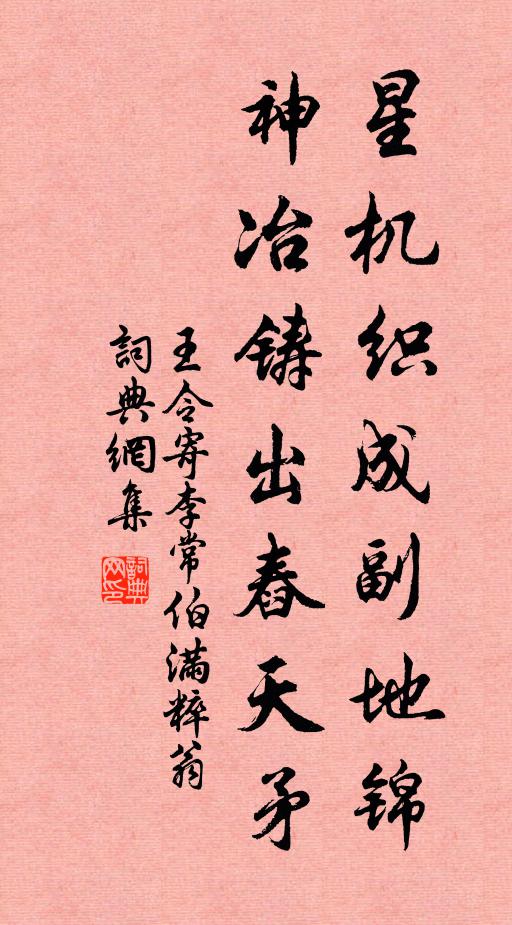 星机织成副地锦
神冶铸出舂天矛
王令寄李常伯滿粹翁
詞典網集
詞典网印